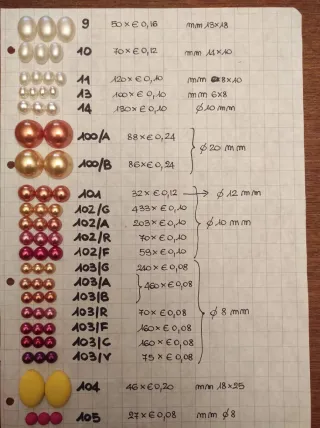 9 50 x € 0,16 mm 13x18
10 70 x € 0,12 mm 14x10
11 120 x € 0,10 mm 8x10
13 100 x € 0,10 mm 6x8
14 190 x € 0,10 ϕ 10 mm
100/A 88 x € 0,24
ϕ 20 mm
100/B 86 x € 0,24
101 32 x € 0,12 → ϕ 12 mm
102/G 433 x € 0,10
102/A 203 x € 0,10 ϕ 10 mm
102/R 70 x € 0,10
102/F 59 x € 0,10
103/G 210 x € 0,08
103/A
460 x € 0,08
103/B
103/R 70 x € 0,08 ϕ 8 mm
103/F 160 x € 0,08
103/C 160 x € 0,08
103/V 75 x € 0,08
104 46 x € 0,20 mm 18x25
105 27 x € 0,08 mm ϕ 8